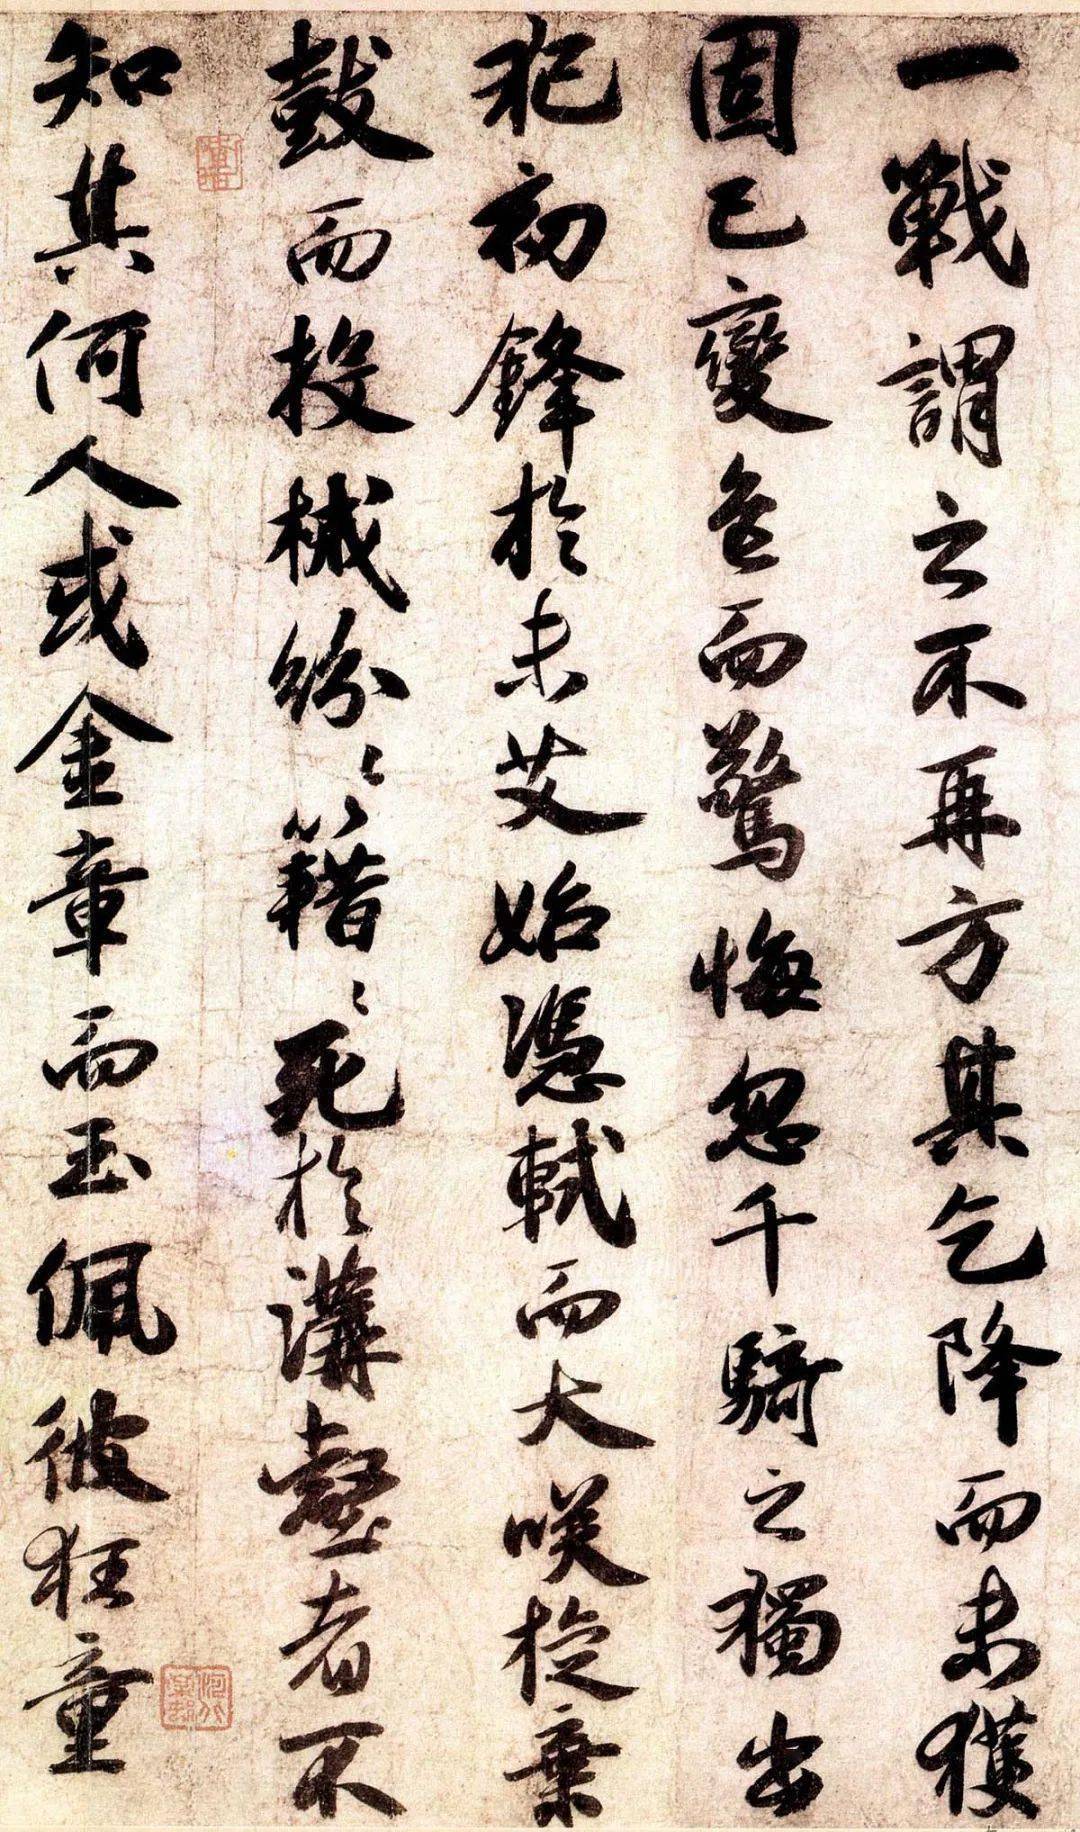 一戰謂之不再方其乞降而未獲
固已變色而驚悔忽千騎之獨出
犯初鋒於未艾始憑軾而大咲旋棄
鼓而投械紛〻籍〻死於溝壑者不
知其何人或金章而玉佩彼狂童